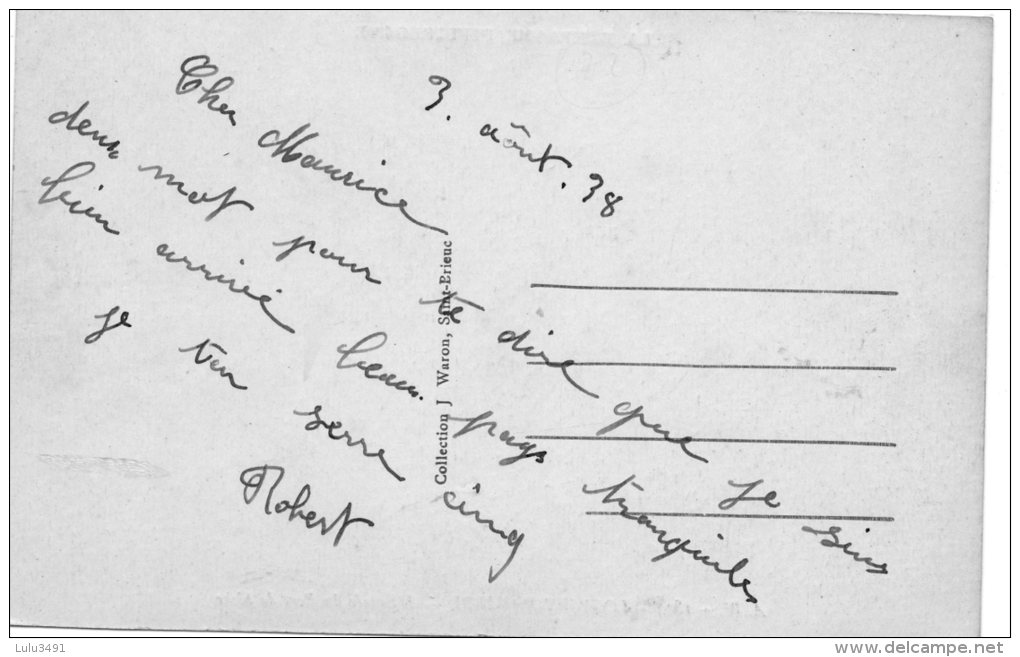 3. août. 38
Cher Maurice
deux mot pour te dire que je suis
bien arrivé beau pays tranquiles
je ten serre cinq
Robert
Collection J Waron, Saint-Brieuc
Lulu3491
delcampe.net